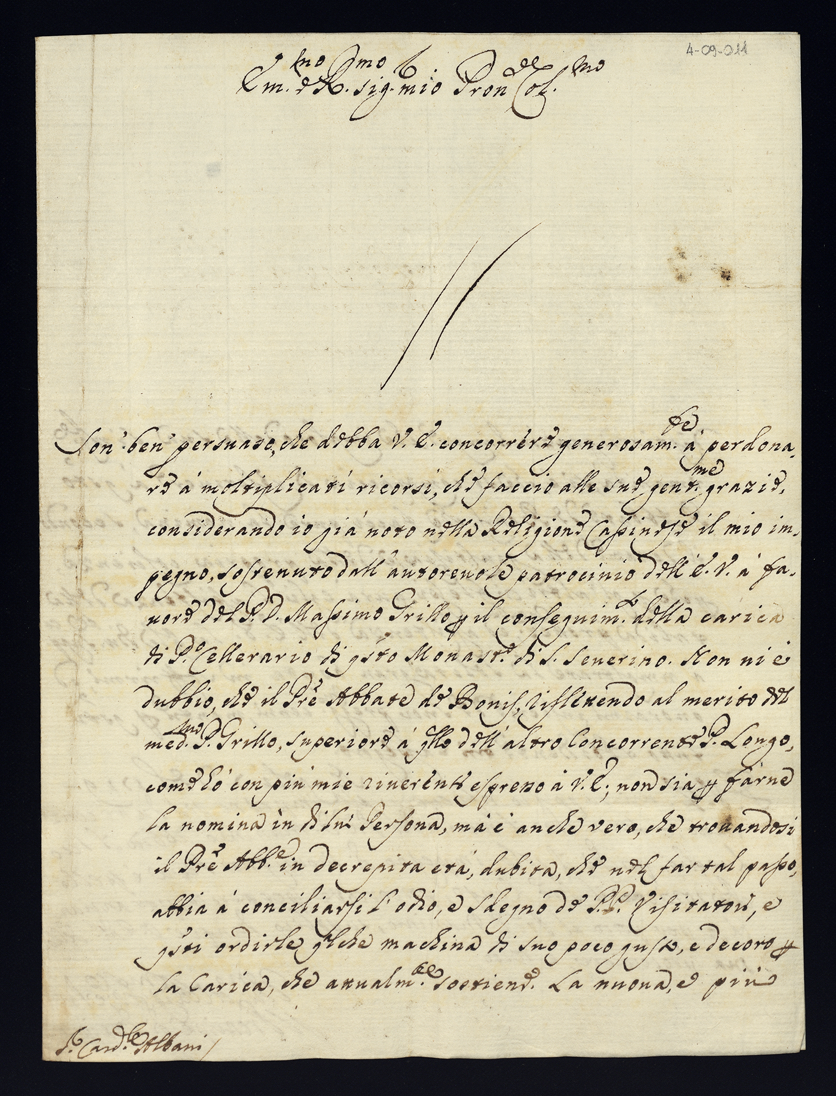 4-09-211
Em.mo e R.mo Sig.r mio P̃ron Col.mo
Son' ben' persuaso, che debba V. E. concorrere generosam.te à perdona-
re à moltiplicati ricorsi, che faccio alle sue gent.me grazie,
considerando io già noto nella Religione Cassinese il mio im-
pegno, sostenuto dall' autorevole patrocinio dell' E. V. à fa-
vore del P. D. Massimo Grillo ꝑ il conseguim.to della carica
di P.o Cellerario di q̃sto Monast.ro di S. Severino. Non vi è
dubbio, che il Pr̃e Abbate de Bonis, riflettendo al merito del
med.mo P. Grillo, superiore à q̃llo dell' altro Concorrente P. Longo,
come hò con più mie riverenti espresso à V. E., non sia ꝑ farne
la nomina in di lui Persona, mà è anche vero, che trovandosi
il Pr̃e Abb.e in decrepita età, dubita, che nel far tal passo,
abbia à conciliarsi l' odio, e sdegno de P.P. Visitatori, e
q̃sti ordirle q̃lche machina di suo poco gusto, e decoro ꝑ
la Carica, che attualm.te sostiene. La nuova, e più
S.r Card.le Albani